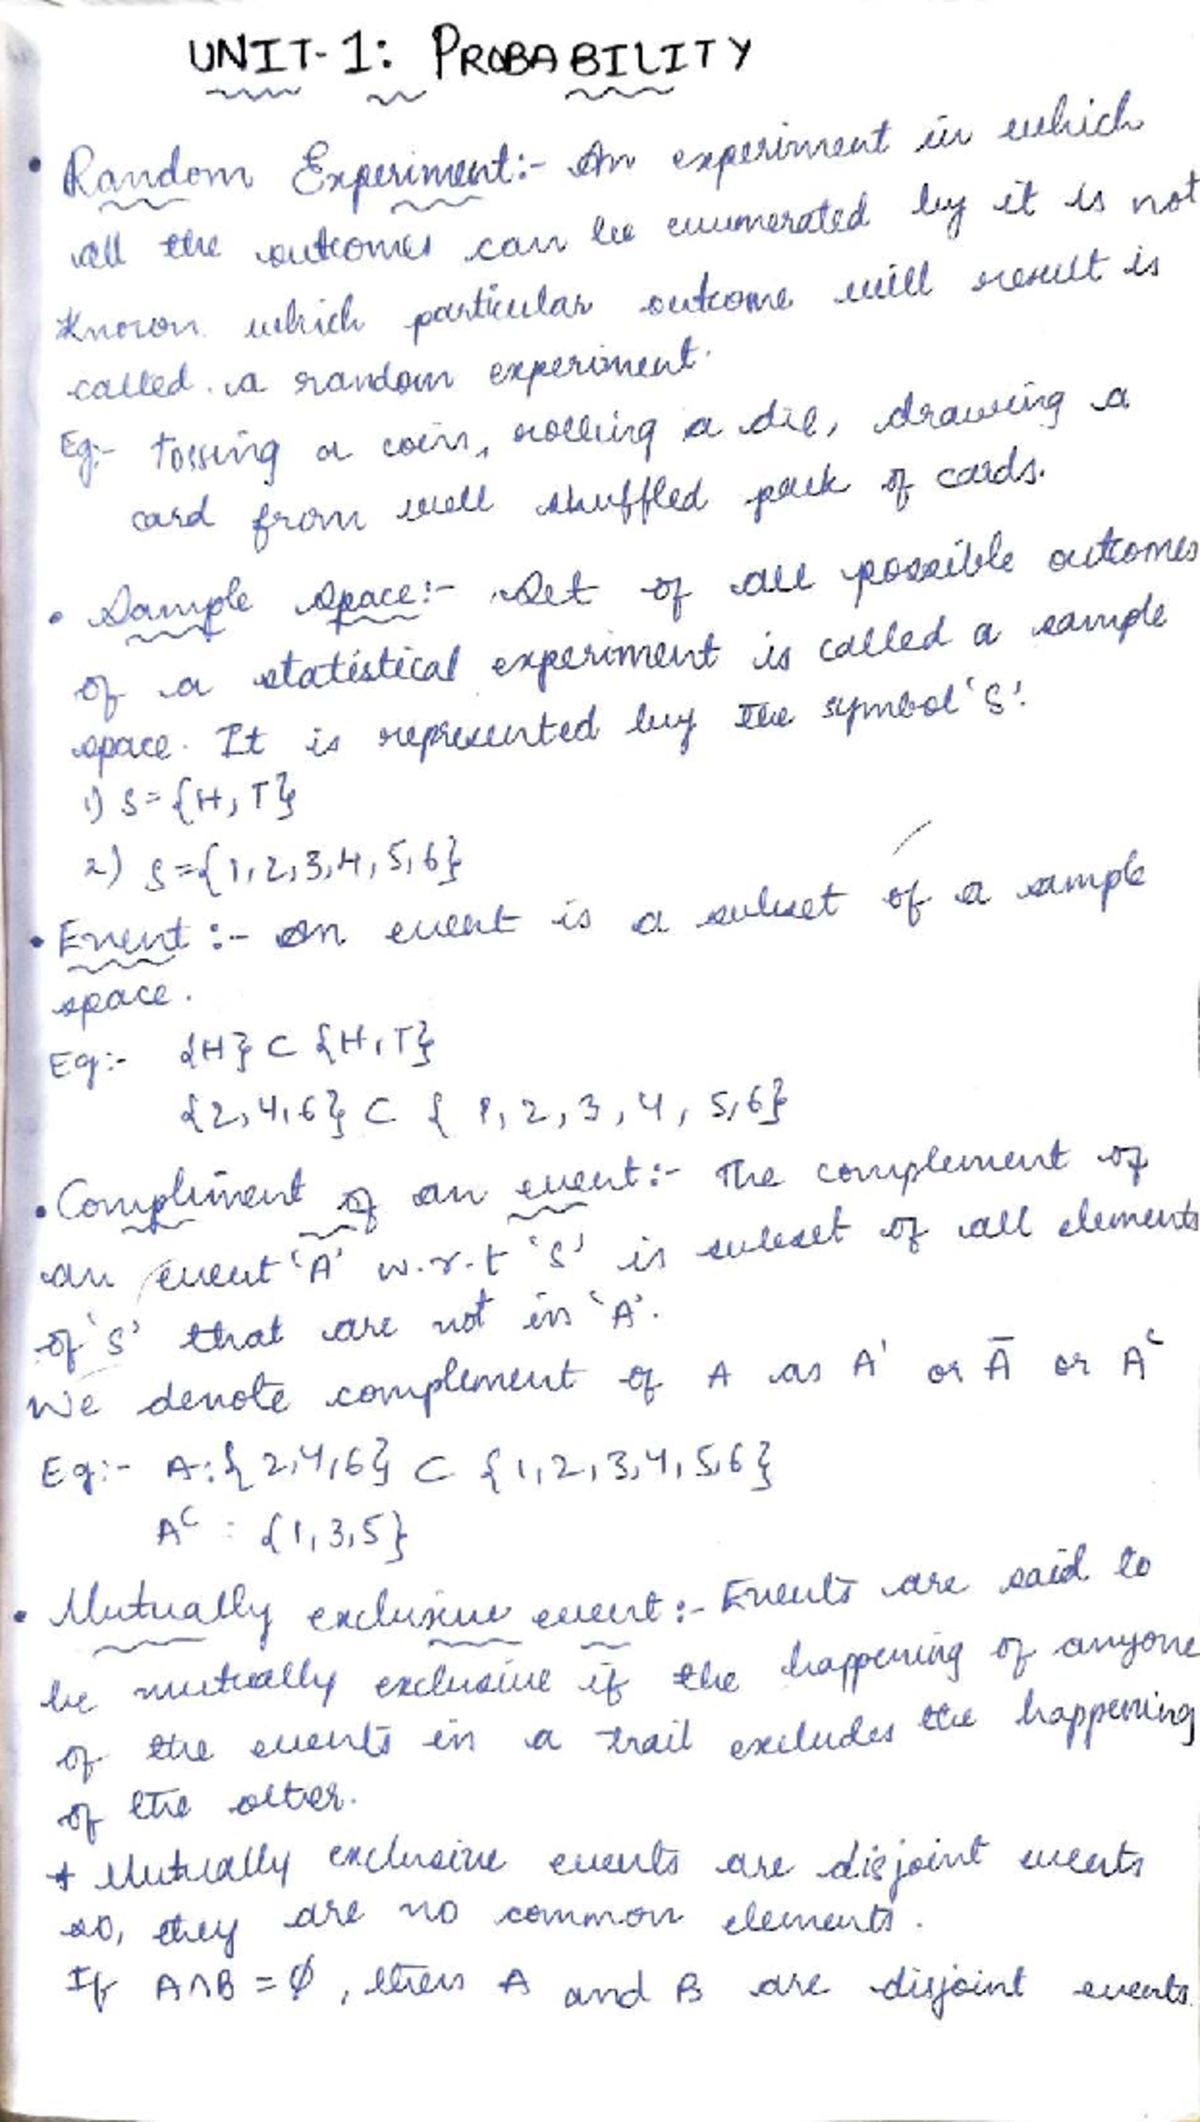 UNIT-1: PROBABILITY
• Random Experiment:- An experiment in which
all the outcomes can be enumerated by it is not
known which particular outcome will result is
called a random experiment.
Eg:- Tossing a coin, rolling a die, drawing a
card from well shuffled pack of cards.
• Sample space:- Set of all possible outcomes
of a statistical experiment is called a sample
space. It is represented by the symbol 'S'.
1) S={H, T}
2) S={1,2,3,4,5,6}
• Event :- An event is a subset of a sample
space.
Eg:- {H} ⊂ {H,T}
{2,4,6} ⊂ {1,2,3,4,5,6}
• Compliment of an event:- The complement of
an event 'A' w.r.t 'S' is subset of all elements
of 'S' that are not in 'A'.
We denote complement of A as A' or Ā or Aᶜ
Eg:- A:{2,4,6} ⊂ {1,2,3,4,5,6}
Aᶜ : {1,3,5}
• Mutually exclusive event:- Events are said to
be mutually exclusive if the happening of anyone
of the events in a trail excludes the happening
of the other.
* Mutually exclusive events are disjoint events
so, they are no common elements.
If A∩B = ∅, then A and B are disjoint events.